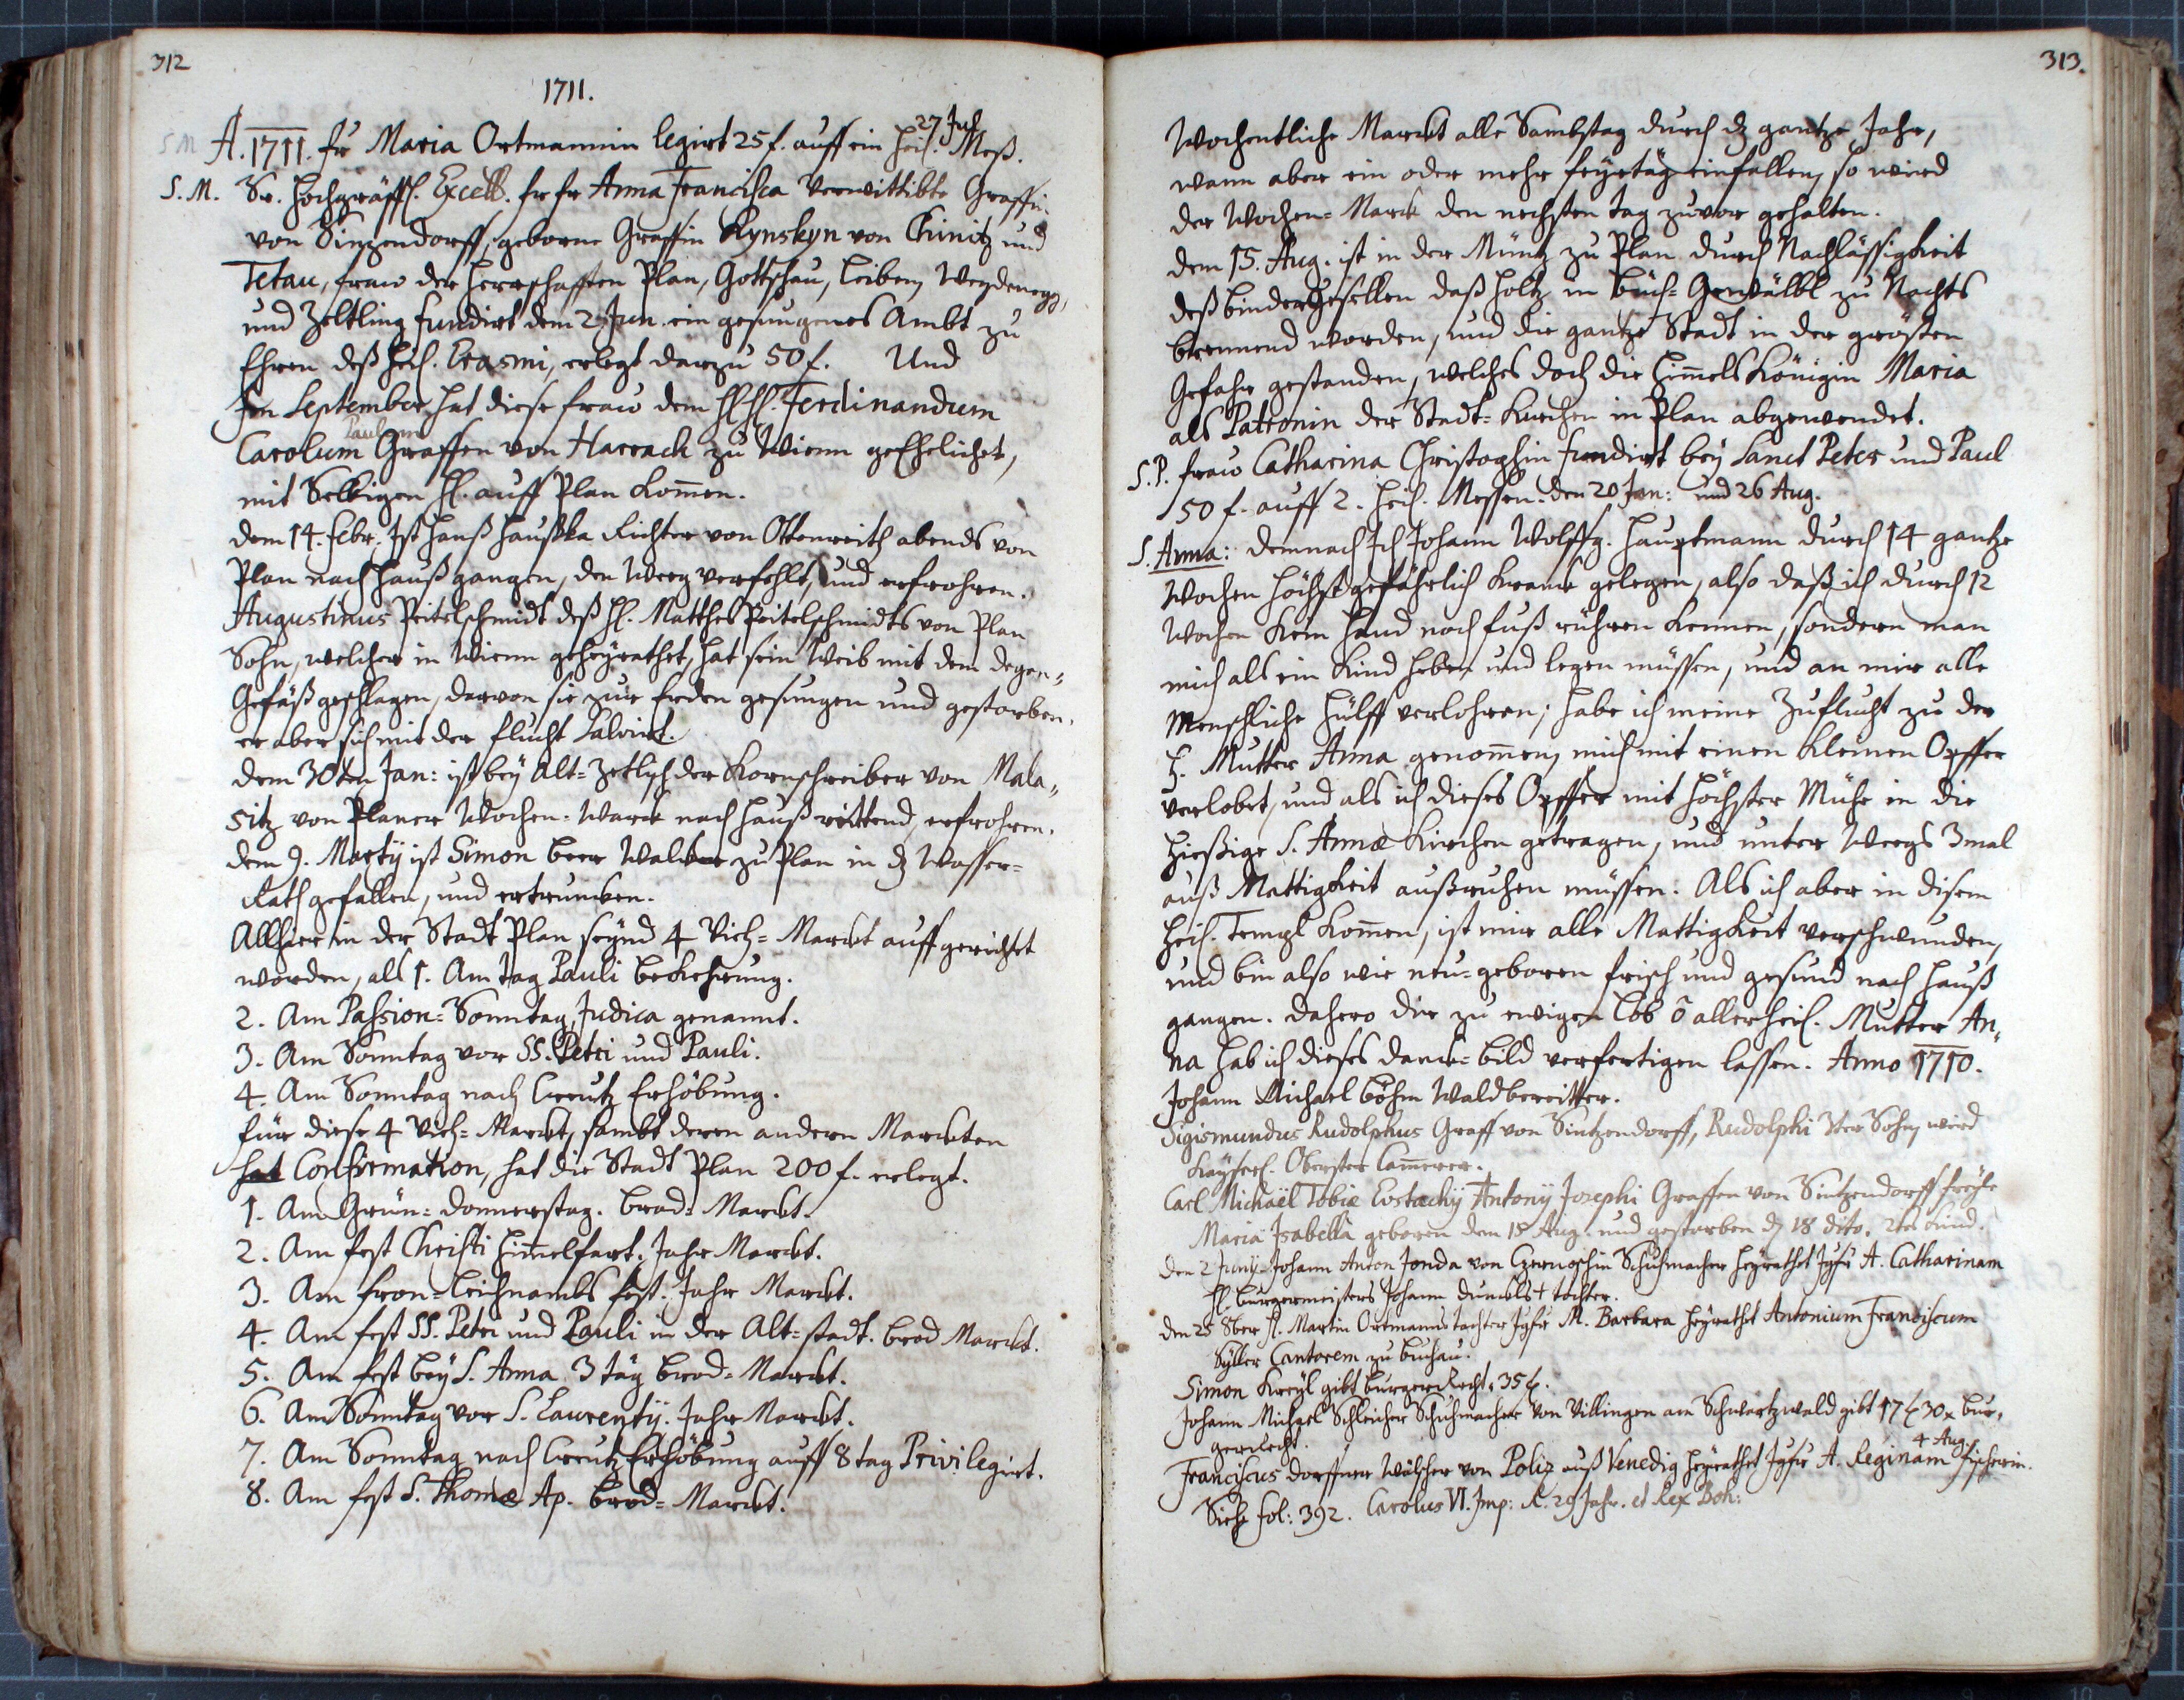 312
1711.
27 Jul
S M A. 1711. fr Maria Ortmannin legirt 25 f. auff ein heil. Meß.
S. M. Sr. Hochgräffl. Excell. fr fr Anna Francisca Verwittibte Graffin
von Sinzendorff, geborne Graffin Kynskyn von Chinitz und
Tetau, fraw der Herrschafften Plan, Gottschau, Leiben, Weydenegg,
und Zeltling fundirt dem 2 Jun. ein gesungenes Ambt zu
Ehren deß heil. Erasmi, erlegt darzu 50 f. Und
Im September hat diese fraw dem Hl Hl. Ferdinandum
Paulum
Carolum Graffen von Harrach zu Wienn geEhelichet,
mit Selbigen Hl. auff Plan kommen.
dem 14. Febr. Ist Hanß Haußka Richter von Ottenreith abends von
Plan nach Hauß gangen, den Weeg verfehlt, und erfrohren.
Augustinus Peitelschmidt deß Hl. Matthes Peitelschmidts von Plan
Sohn, welcher in Wienn geheyrathet, hat sein Weib mit dem degen-
Gefäß geschlagen, darvon sie zur Erden gesungen und gestorben,
er aber sich mit der flucht Salvirt.
dem 30ten Jan: ist bey Alt-Zetlisch der Kornschreiber von Mala-
sitz von Planer Wochen-Marck nach Hauß reittend, erfrohren.
dem 9. Martij ist Simon beer Walcker zu Plan in dz Wasser-
Rath gefallen, und ertruncken.
Allhier in der Stadt Plan seynd 4 Vieh-Marckt auffgerichtet
worden, als 1. Am tag Pauli bekehrung.
2. Am Passion-Sonntag, Judica genannt.
3. Am Sonntag vor SS. Petri und Pauli.
4. Am Sonntag nach Creutz Erhöbung.
für diese 4 Vieh-Marckt, sambt deren andern Marckten
hat Confirmation, hat die Stadt Plan 200 f. erlegt.
1. Am Grün-donnerstag. brod-Marckt.
2. Am fest Christi Himmelfart. Jahr Marckt.
3. Am fron-Leichnambs fest. Jahr Marckt.
4. Am fest SS. Petri und Pauli in der Alt-stadt. brod Marckt.
5. Am fest bey S. Anna 3 täg brod-Marckt.
6. Am Sonntag vor S. Laurentij. Jahr Marckt.
7. Am Sonntag nach Creutz Erhöbung auff 8 tag Privilegirt.
8. Am fest S. Thomæ Ap. brod-Marckt.
313.
Wochentliche Marckt alle Sambstag durch dz gantze Jahr,
wann aber ein oder mehr feyrtäg einfallen, so wird
der Wochen-Marck den nechsten tag zuvor gehalten.
dem 15. Aug. ist in der Müntz zu Plan durch Nachlässigkeit
deß bindergesellen daß Holtz in Gewälbl zu Nachts
brennend worden, und die gantze Stadt in der grösten
Gefahr gestanden, welches doch die Himmels Königin Maria
als Patronin der Stadt-Kirchen in Plan abgewendet.
S. P. fraw Catharina Christophin fundirt bey Sanct Peter und Paul
50 f. auff 2. heil. Messen. den 20 Jan: und 26 Aug.
S. Anna: demnach Ich Johann Wolffg. Hauptmann durch 14 gantze
Wochen höchst gefährlich kranck gelegen, also daß ich durch 12
Wochen kein Hand noch fuß rühren kennen, sondern man
mich als ein Kind heben und legen müssen, und an mir alle
Menschliche Hülff verlohren; habe ich meine Zuflucht zu der
H. Mutter Anna genommen, mich mit einen kleinen Opffer
verlobet, und als ich dieses Opffer mit höchster Mühe in die
hießige S. Annæ Kirchen getragen, und unter Weegs 3mal
auß Mattigkeit außruhen müssen. Als ich aber in disem
heil. Templ kommen, ist mir alle Mattigkeit verschwunden,
und bin also wie neu-geboren frisch und gesund nach Hauß
gangen. dahero dir zu ewigen Lob ô allerheil. Mutter An-
na hab ich dieses danck-bild verfertigen lassen. Anno 1710.
Johann Michael böhm Waldbereitter.
Sigismundus Rudolphus Graff von Sintzendorff, Rudolphi 3ter Sohn, wird
Kayserl. Obrster Cammerer.
Carl Michaël Tobiæ Eustachij Antonij Josephi Graffen von Sintzendorff
Maria Isabella geboren dem 18 Aug. und gestorben dz 18 dito. 2tes Kind.
den 2 Junij Johann Anton Jonda von Czernoschin Schuhmacher heyrathet Jgfr A. Catharinam
Hl. burgermeisters Johann dumbls † tochter.
den 25 8ber Hl. Martin Ortmanns tochter Jgfr M. Barbara heyrathet Antonium Franciscum
Syller Cantorem zu buchau.
Simon Kreyl gibt burger Recht 35 f.
Johann Michael Schleicher Schuhmacher von Villingen am Schwartzwald gibt 17 f 30 x bur-
gerRecht.
4 Aug.
Franciscus dorffner Wälscher von Poliz auß Venedig heyrathet Jgfr A. Reginam fischerin.
Sieh fol: 392. Carolus VI. Imp: R. 29 Jahr. et Rex Boh: